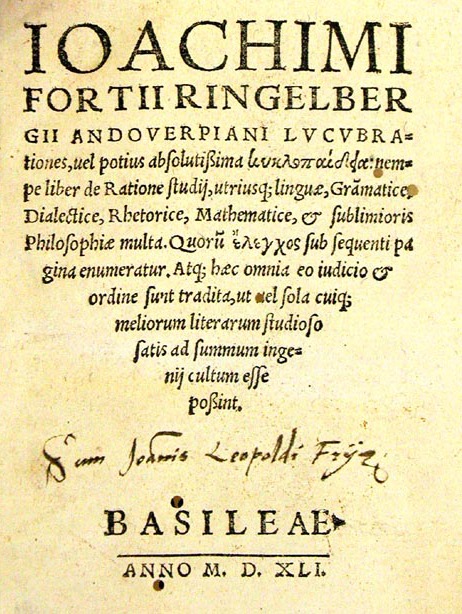 IOACHIMI
FORTII RINGELBER
GII ANDOVERPIANI LVCVBRA=
tiones, uel potius absolutißima κυκλοπαίδεια: nem=
pe liber de Ratione studij, utriusq; linguæ, Grãmatice,
Dialectice, Rhetorice, Mathematice, & sublimioris
Philosophiæ multa. Quorũ ἔλεγχος sub sequenti pa
gina enumeratur. Atq; hæc omnia eo iudicio &
ordine sunt tradita, ut uel sola cuiq;
meliorum literarum studioso
satis ad summum inge=
nij cultum esse
poßint.
Sum Joãnis Leopoldi Frÿz
BASILEAE
ANNO M. D. XLI.